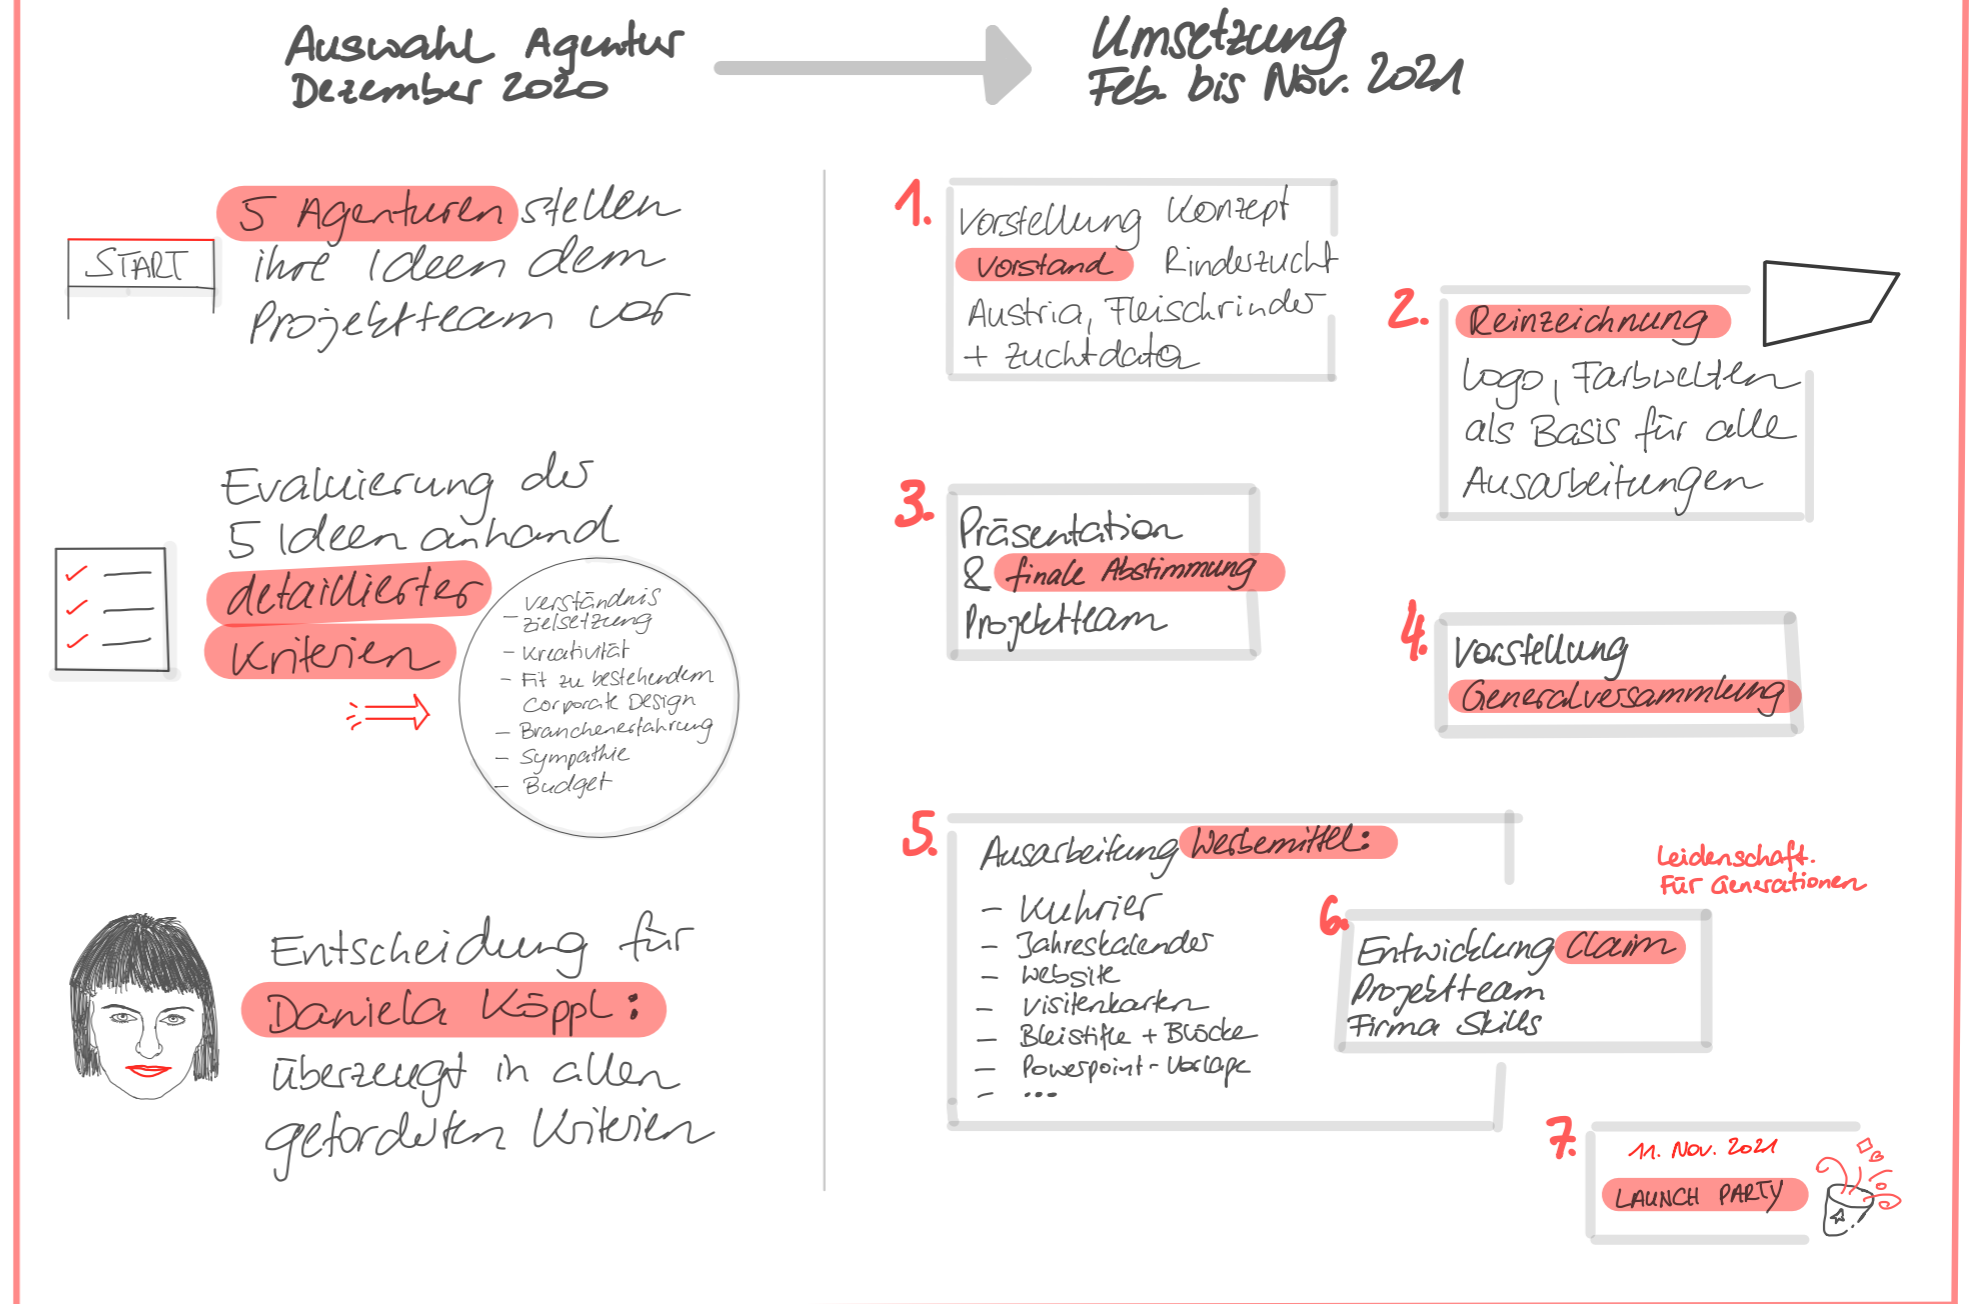 Auswahl Agentur
Dezember 2020
Umsetzung
Feb. bis Nov. 2021
START
5 Agenturen stellen
ihre Ideen dem
Projektteam vor
Evaluierung der
5 Ideen anhand
detaillierter
Kriterien
- Verständnis
Zielsetzung
- Kreativität
- Fit zu bestehendem
Corporate Design
- Branchenerfahrung
- Sympathie
- Budget
Entscheidung für
Daniela Köppl:
überzeugt in allen
geforderten Kriterien
1.
Vorstellung Konzept
Vorstand Rinderzucht
Austria, Fleischrinder
+ Zuchtdata
2.
Reinzeichnung
Logo, Farbwelten
als Basis für alle
Ausarbeitungen
3.
Präsentation
& finale Abstimmung
Projektteam
4.
Vorstellung
Generalversammlung
5.
Ausarbeitung Werbemittel:
- Kuhrier
- Jahreskalender
- Website
- Visitenkarten
- Bleistifte + Blöcke
- Powerpoint-Vorlage
- ...
Leidenschaft.
Für Generationen
6.
Entwicklung Claim
Projektteam
Firma Skills
7.
11. Nov. 2021
LAUNCH PARTY